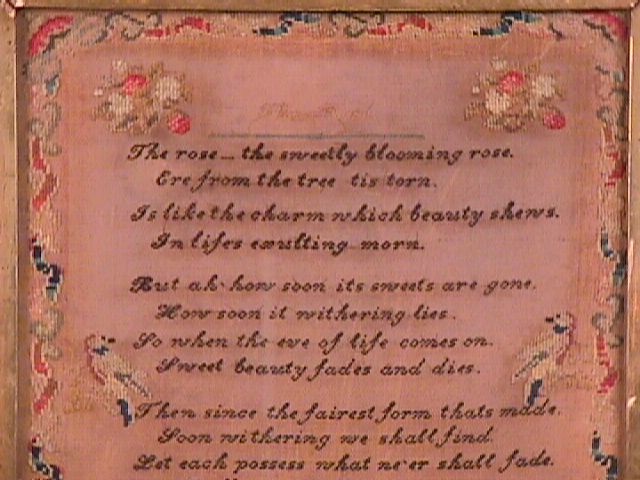 The rose _ the sweetly blooming rose.
Ere from the tree tis torn.
Is like the charm which beauty shews.
In lifes exulting morn.
But ah how soon its sweets are gone.
How soon it withering lies.
So when the eve of life comes on.
Sweet beauty fades and dies.
Then since the fairest form thats made.
Soon withering we shall find.
Let each possess what ne'er shall fade.